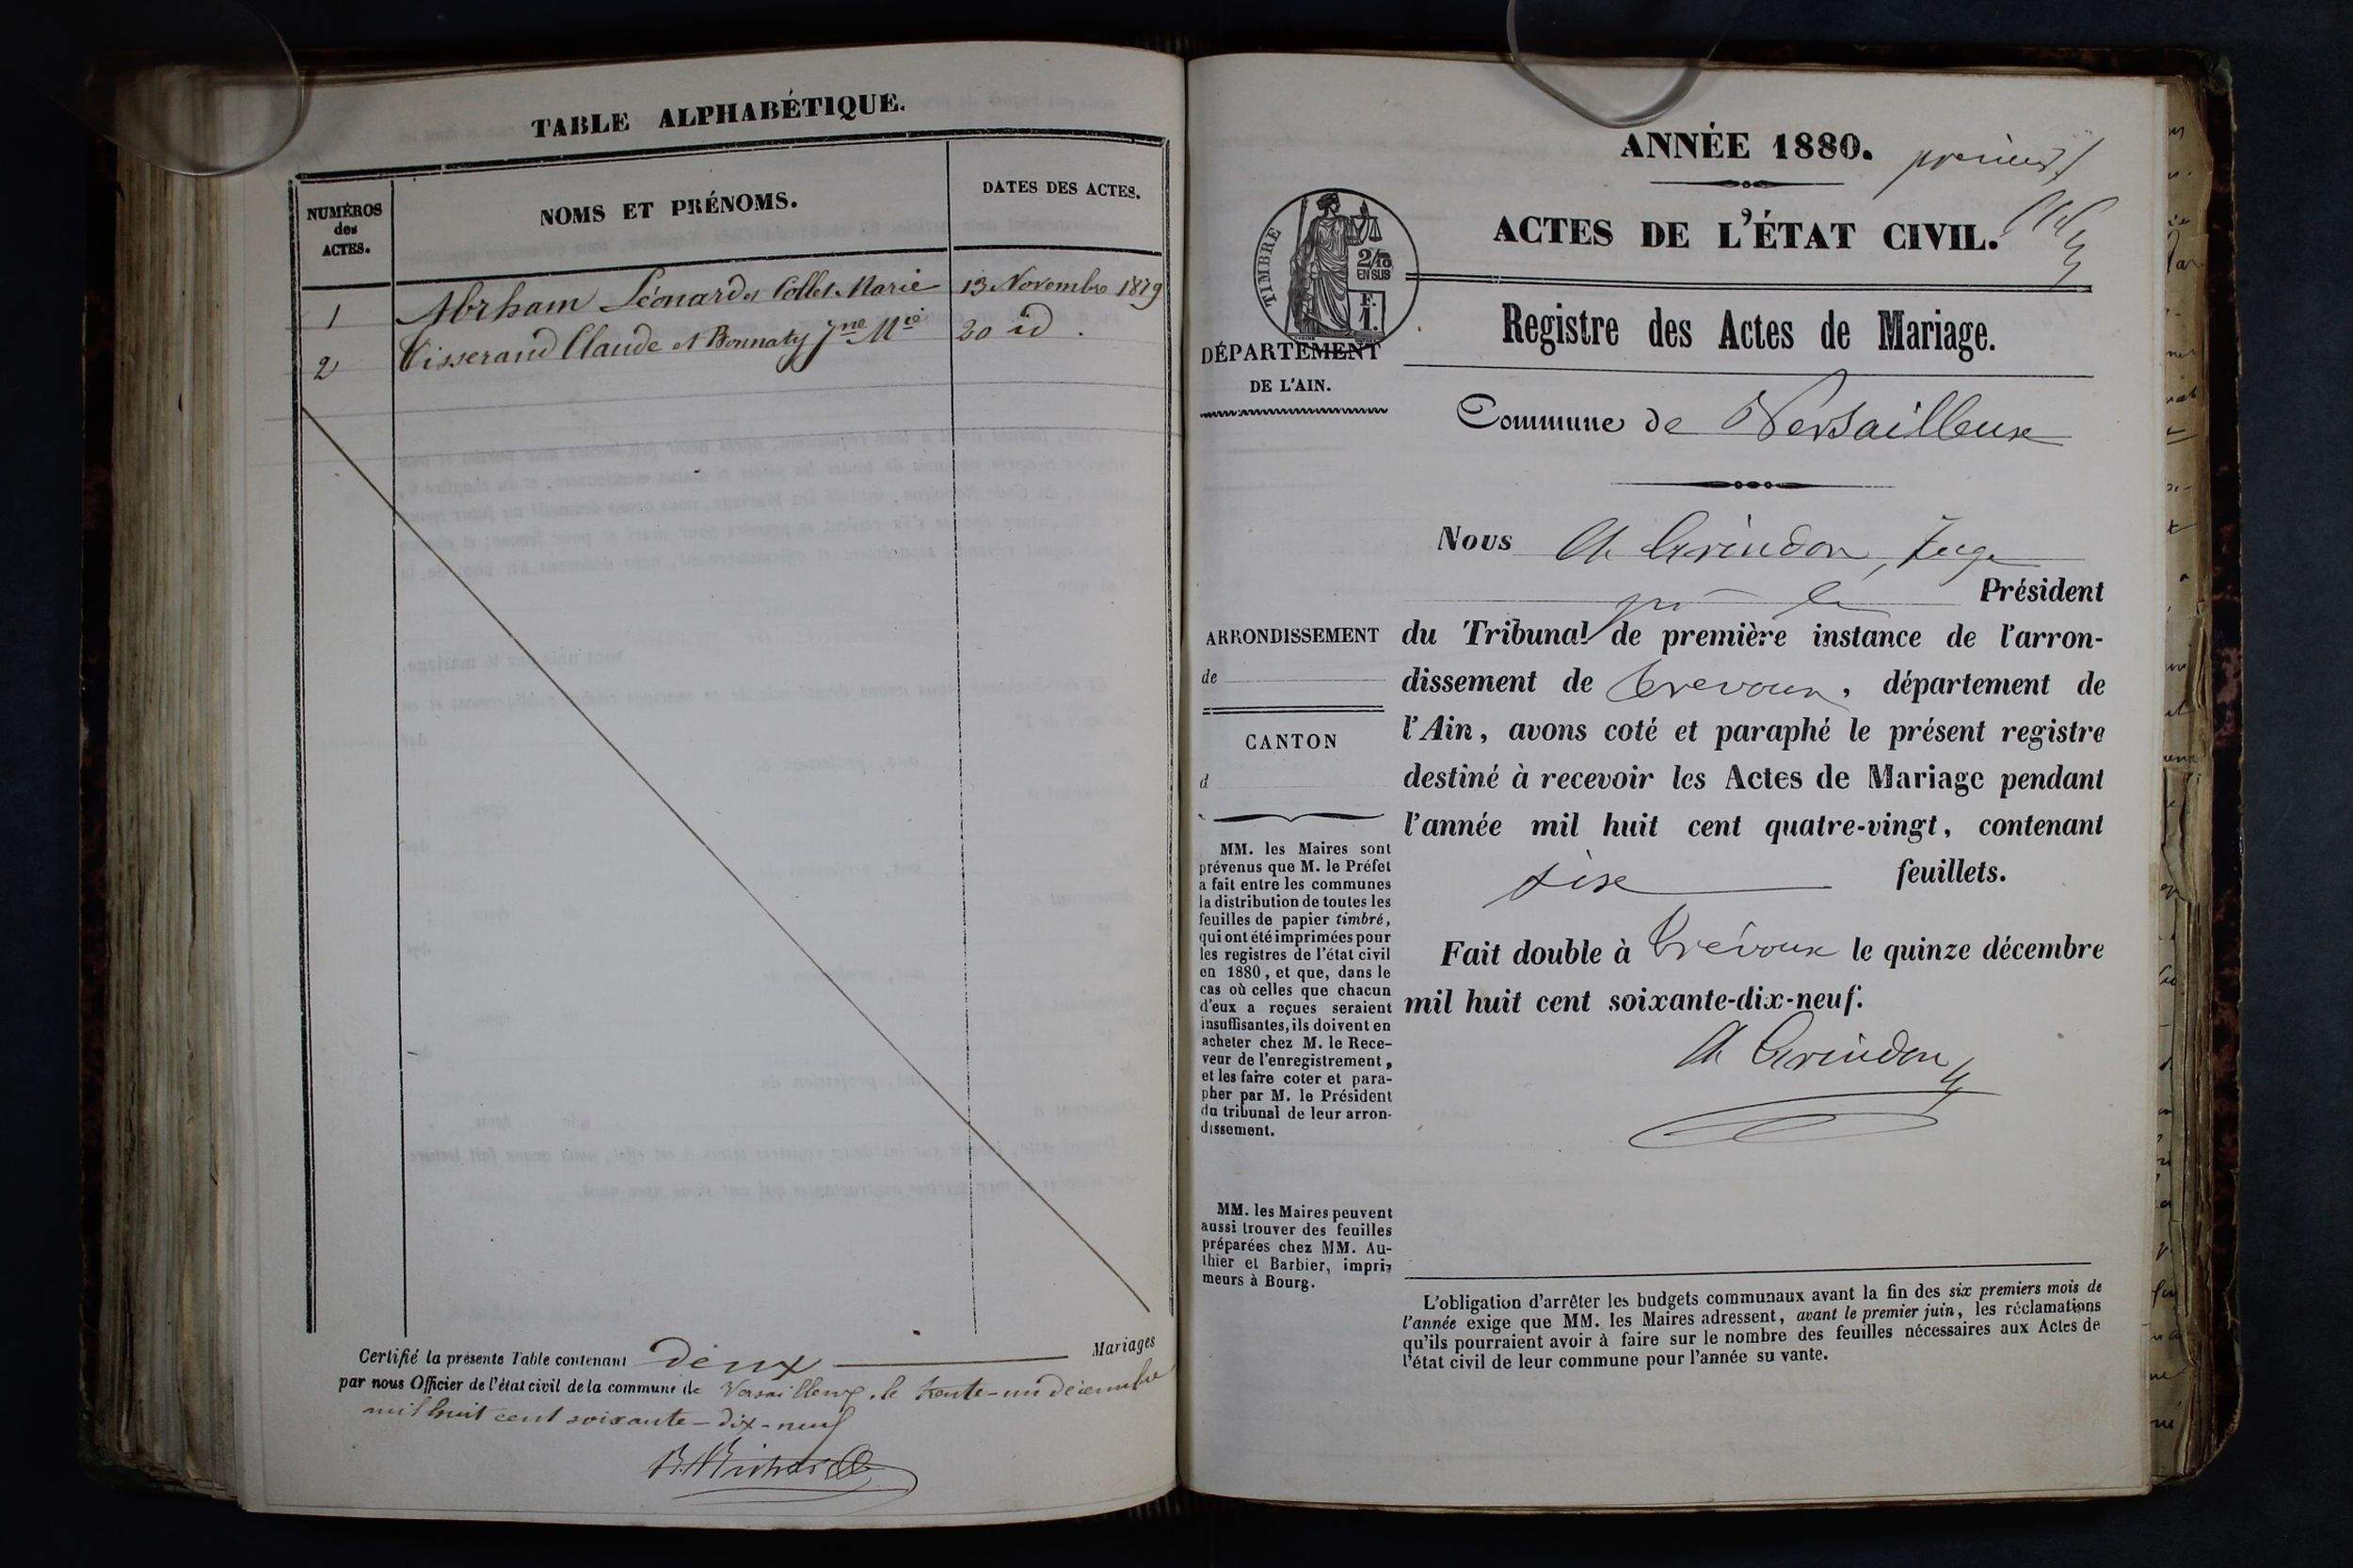 TABLE ALPHABÉTIQUE.
NUMÉROS
des
ACTES.
NOMS ET PRÉNOMS.
DATES DES ACTES.
1 Abrham Léonard et Collet Marie 13 Novembre 1879
2 Tisserand Claude et Bonnaty Jne Mie 20 id.
Certifié la présente Table contenant deux Mariages
par nous Officier de l'état civil de la commune de Versailleux, le trente-un décembre
mil huit cent soixante-dix-neuf
ANNÉE 1880.
premier
ACTES DE L'ÉTAT CIVIL.
TIMBRE
2/10
EN SUS
F.
1.
Registre des Actes de Mariage.
DÉPARTEMENT
DE L'AIN.
Commune de Versailleux
Nous Ch Grindon, Juge
Président
ARRONDISSEMENT
de
CANTON
d
du Tribunal de première instance de l'arron-
dissement de Trevoux, département de
l'Ain, avons coté et paraphé le présent registre
destiné à recevoir les Actes de Mariage pendant
l'année mil huit cent quatre-vingt, contenant
six feuillets.
Fait double à Trévoux le quinze décembre
mil huit cent soixante-dix-neuf.
Ch Grindon
MM. les Maires sont
prévenus que M. le Préfet
a fait entre les communes
la distribution de toutes les
feuilles de papier timbré,
qui ont été imprimées pour
les registres de l'état civil
en 1880, et que, dans le
cas où celles que chacun
d'eux a reçues seraient
insuffisantes, ils doivent en
acheter chez M. le Rece-
veur de l'enregistrement,
et les faire coter et para-
pher par M. le Président
du tribunal de leur arron-
dissement.
MM. les Maires peuvent
aussi trouver des feuilles
préparées chez MM. Au-
thier et Barbier, impri-
meurs à Bourg.
L'obligation d'arrêter les budgets communaux avant la fin des six premiers mois de
l'année exige que MM. les Maires adressent, avant le premier juin, les réclamations
qu'ils pourraient avoir à faire sur le nombre des feuilles nécessaires aux Actes de
l'état civil de leur commune pour l'année su vante.